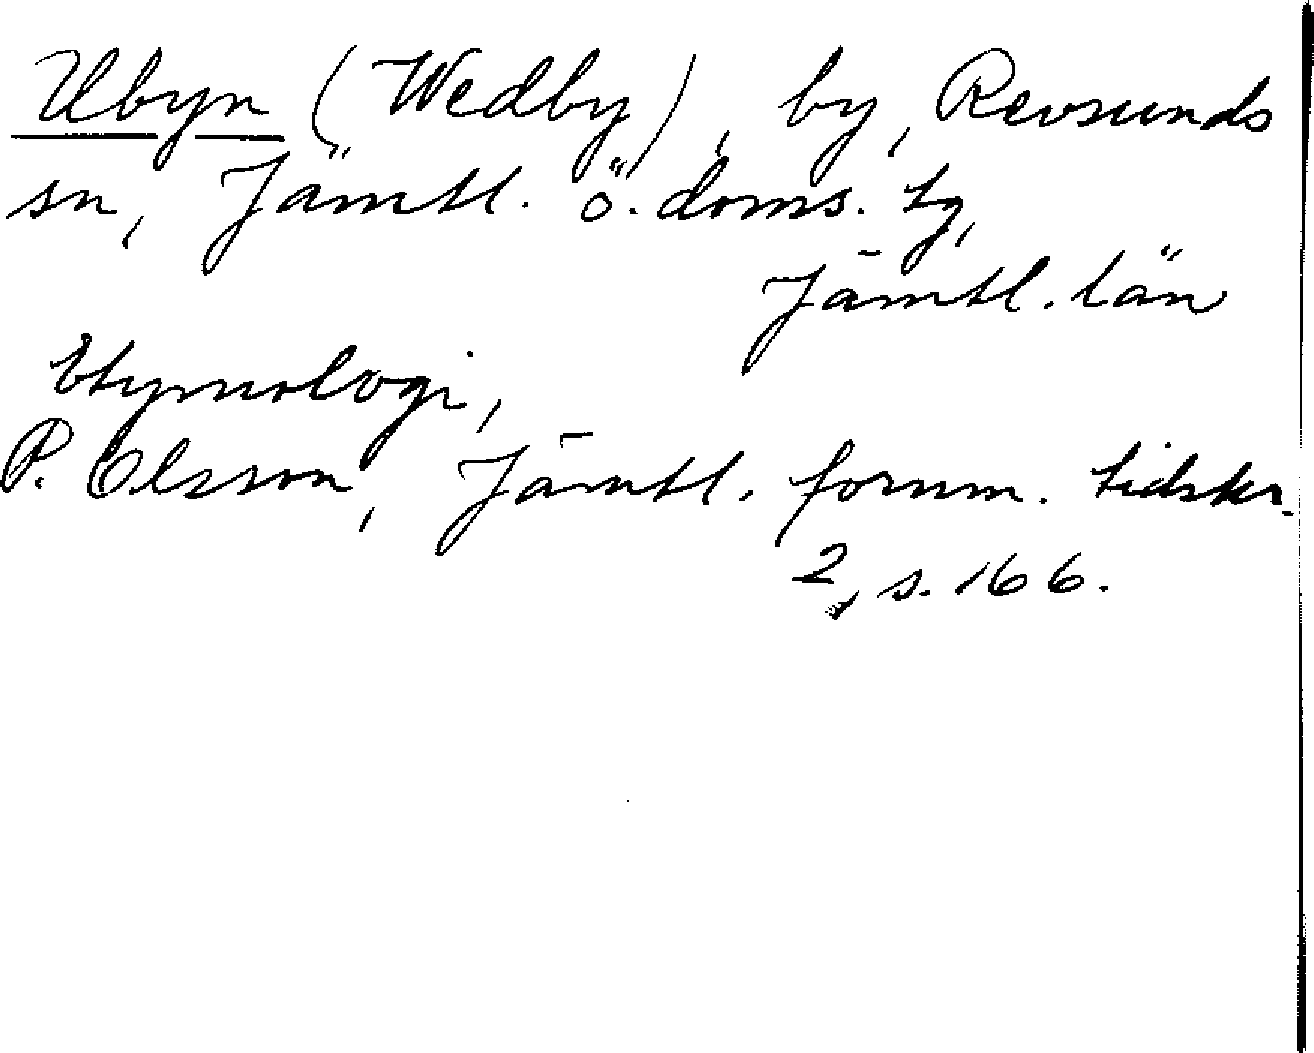 Ubyn (Wedby), by, Revsunds
sn, Jämtl. ö. doms. tg,
Jämtl. län
Etymologi,
P. Olsson, Jämtl. fornm. tidskr.
2, s. 166.